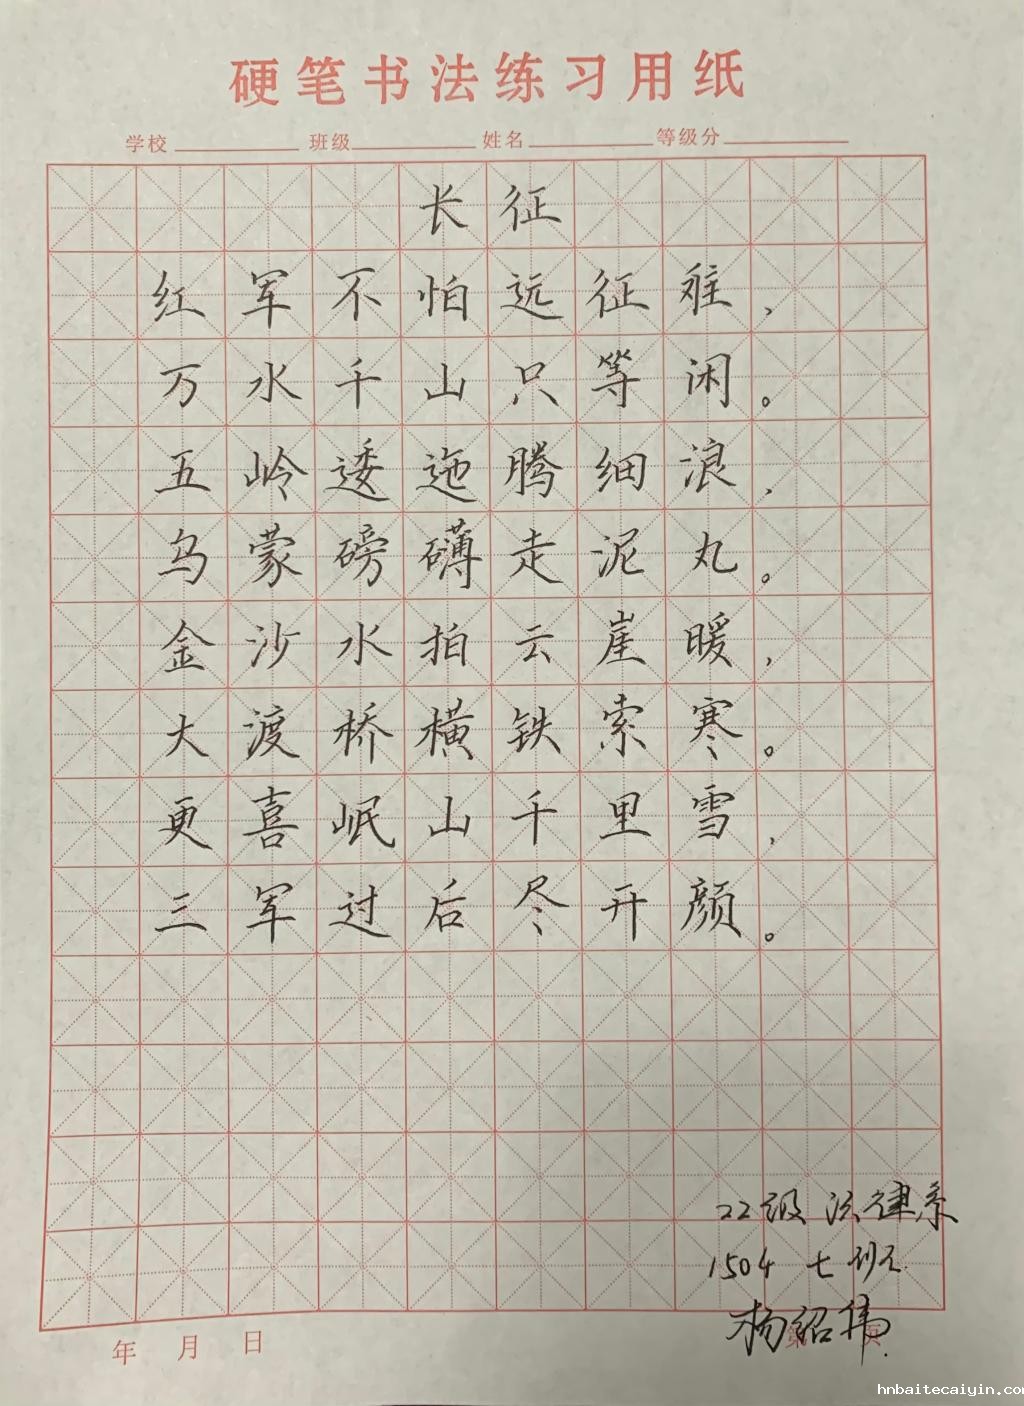 硬笔书法练习用纸
学校 班级 姓名 等级分
长征
红军不怕远征难，
万水千山只等闲。
五岭逶迤腾细浪，
乌蒙磅礴走泥丸。
金沙水拍云崖暖，
大渡桥横铁索寒。
更喜岷山千里雪，
三军过后尽开颜。
22级 法律系
1504 七班
杨绍伟
年 月 日 第 页
hnbaitecaiyin.com